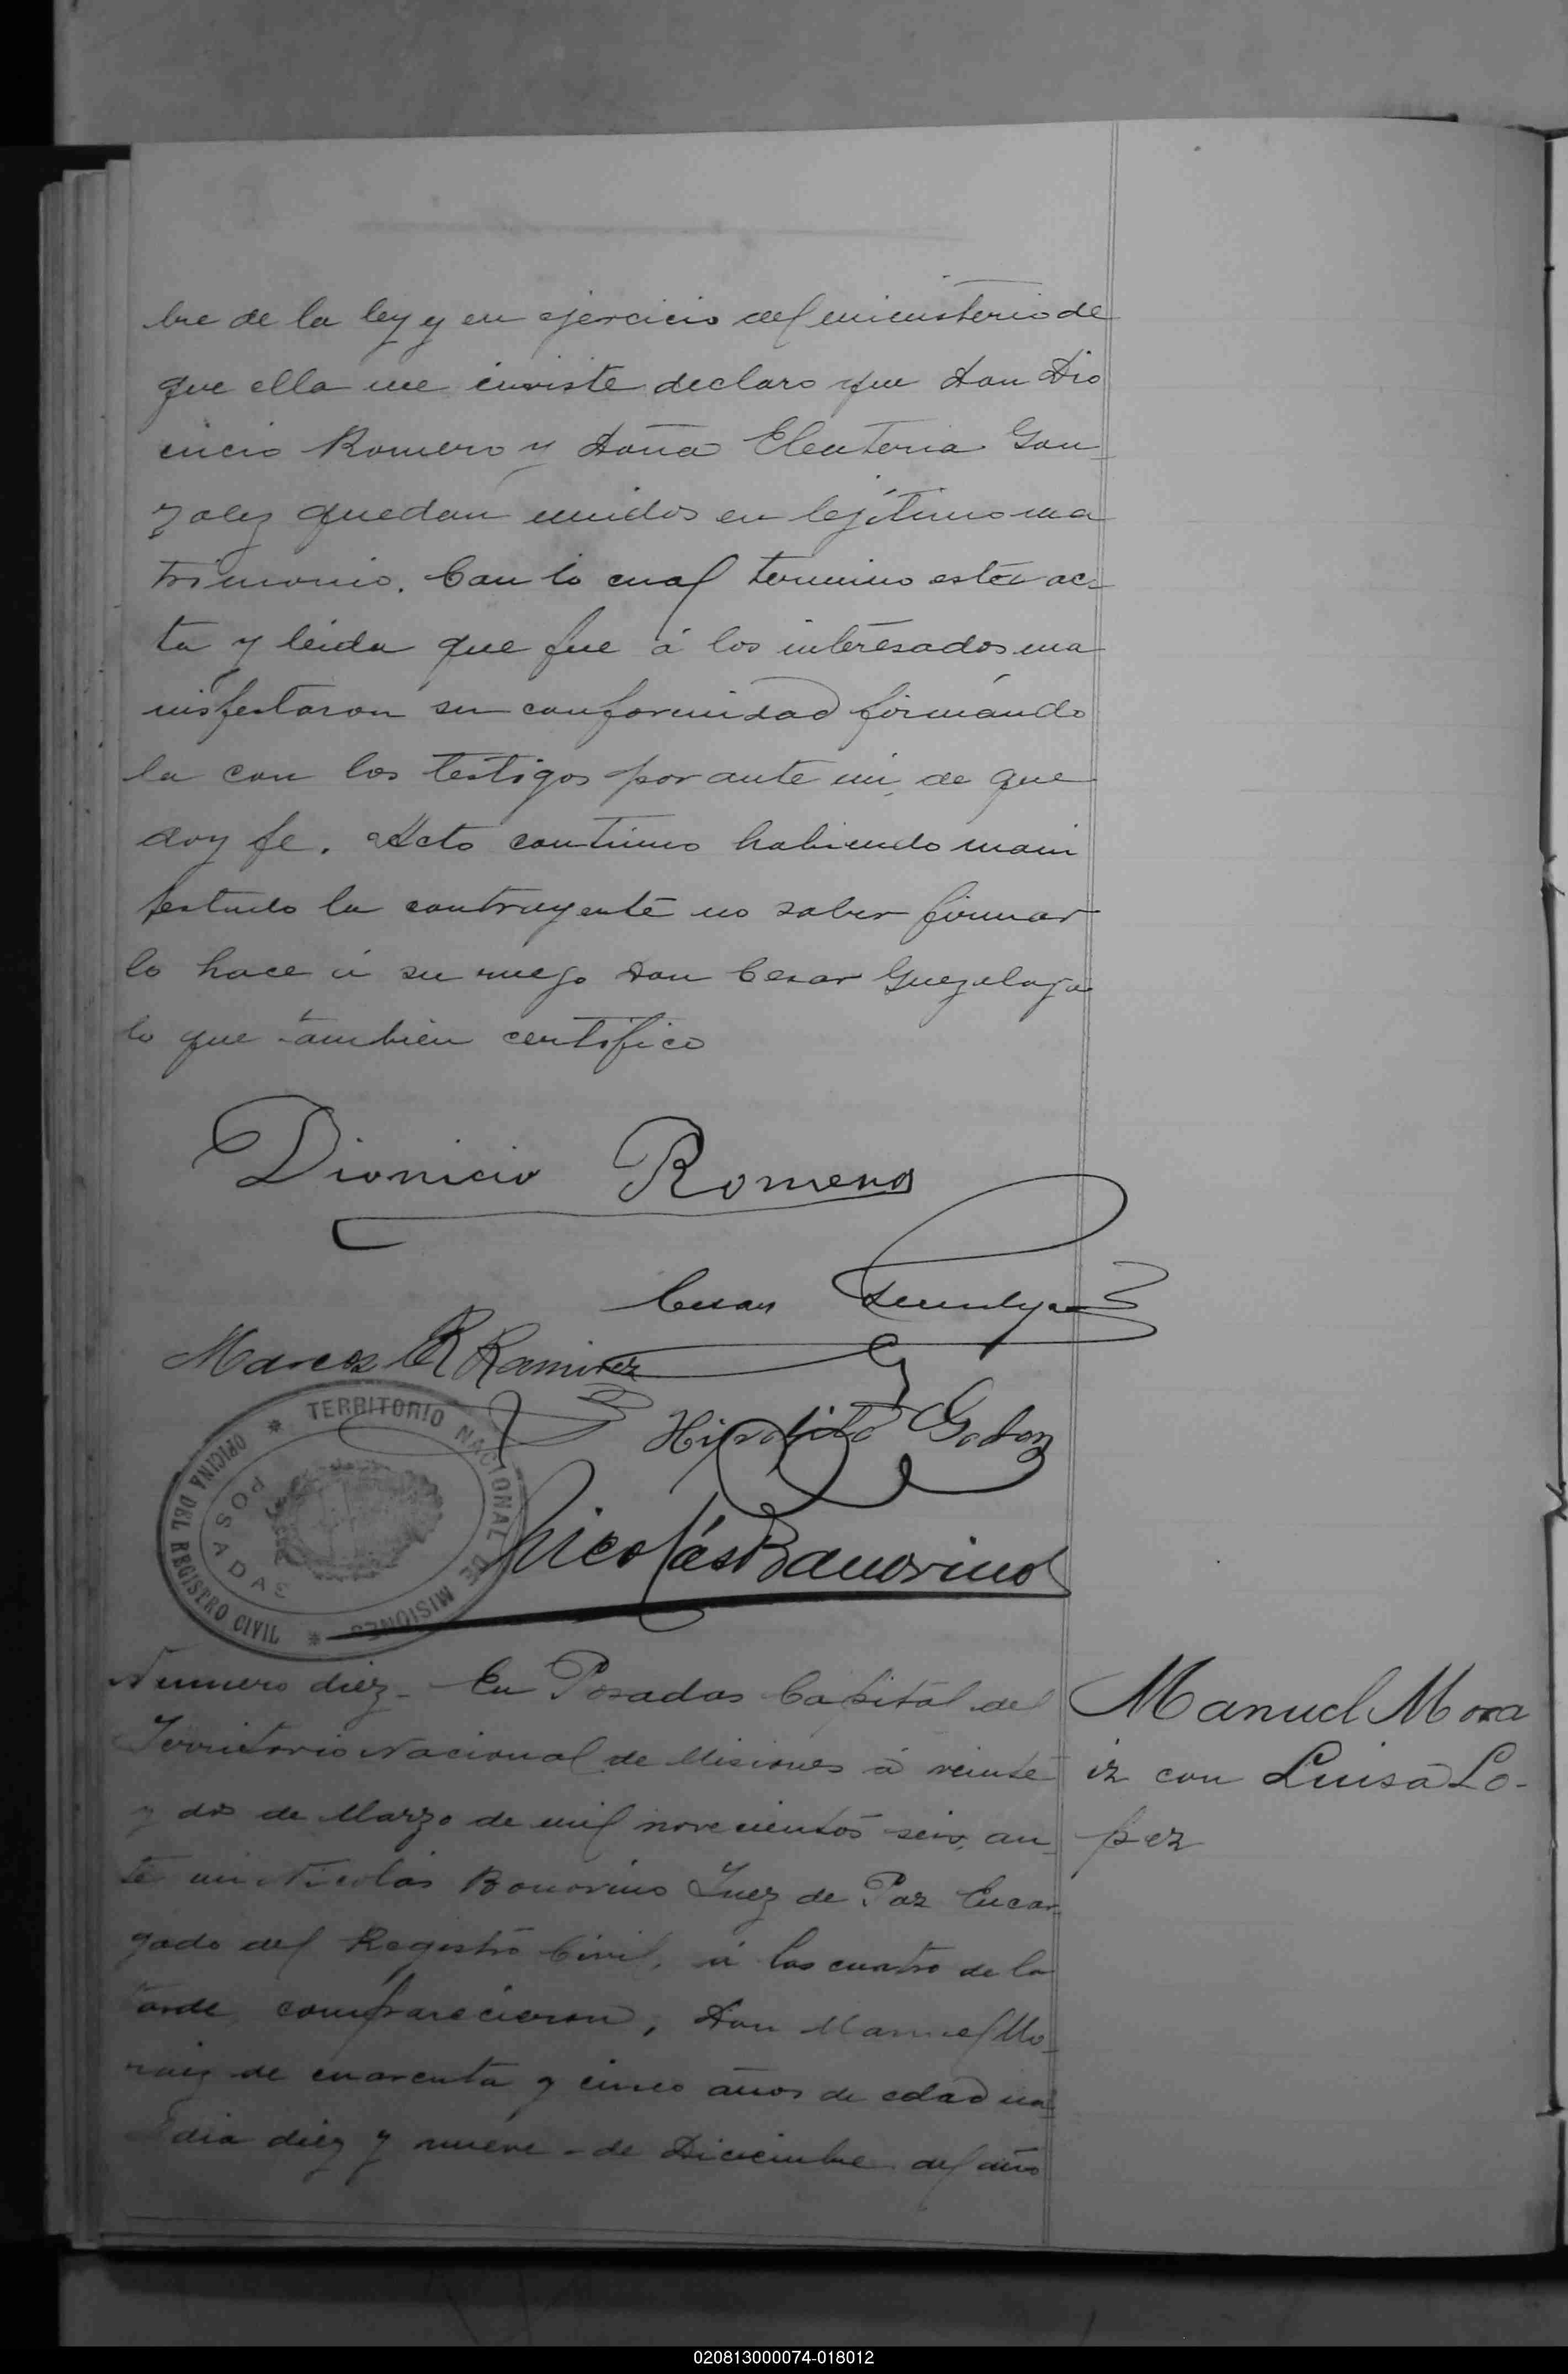 bre de la ley y en ejercicio del ministerio de
que ella me inviste declaro que Don Dio
nicio Romero y Doña Eleuteria Gon-
zalez quedan unidos en lejítimo ma
trimonio. Con lo cual termino esta ac-
ta y leida que fue á los interesados ma
nisfestaron su conformidad firmando
la con los testigos por ante mi, de que
doy fe. Acto continuo habiendo mani
festado la contrayente no saber firmar
lo hace á su ruego Don Cesar Guezalaga
lo que tambien certifico
Dionicio Romero
Cesar
Marcos R Ramirez
Hipolito Godoy
TERRITORIO NACIONAL DE MISIONES
OFICINA DEL REGISTRO CIVIL
POSADAS
Nicolás Bonorino
Numero diez - En Posadas Capital del
Territorio Nacional de Misiones á veinte
y dos de Marzo de mil novecientos seis, an-
te mi Nicolás Bonorino Juez de Paz Encar-
gado del Registro Civil, á las cuatro de la
tarde, comparecieron, Don Manuel Mo-
raiz de cuarenta y cinco años de edad na-
dia diez y nueve - de Diciembre del año
Manuel Mora
iz con Luisa Lo-
pez
020813000074-018012